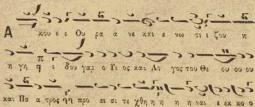 Α κου ε ε Ου ρα α νε και ε νω τι ι ζου η
η γη η ι δου γαρ ο Υι ος και Λο γος του Θε ου ου ου
και Πα α τρος η προ ει σι τε χθη η η η ναι ε εκ κο ο